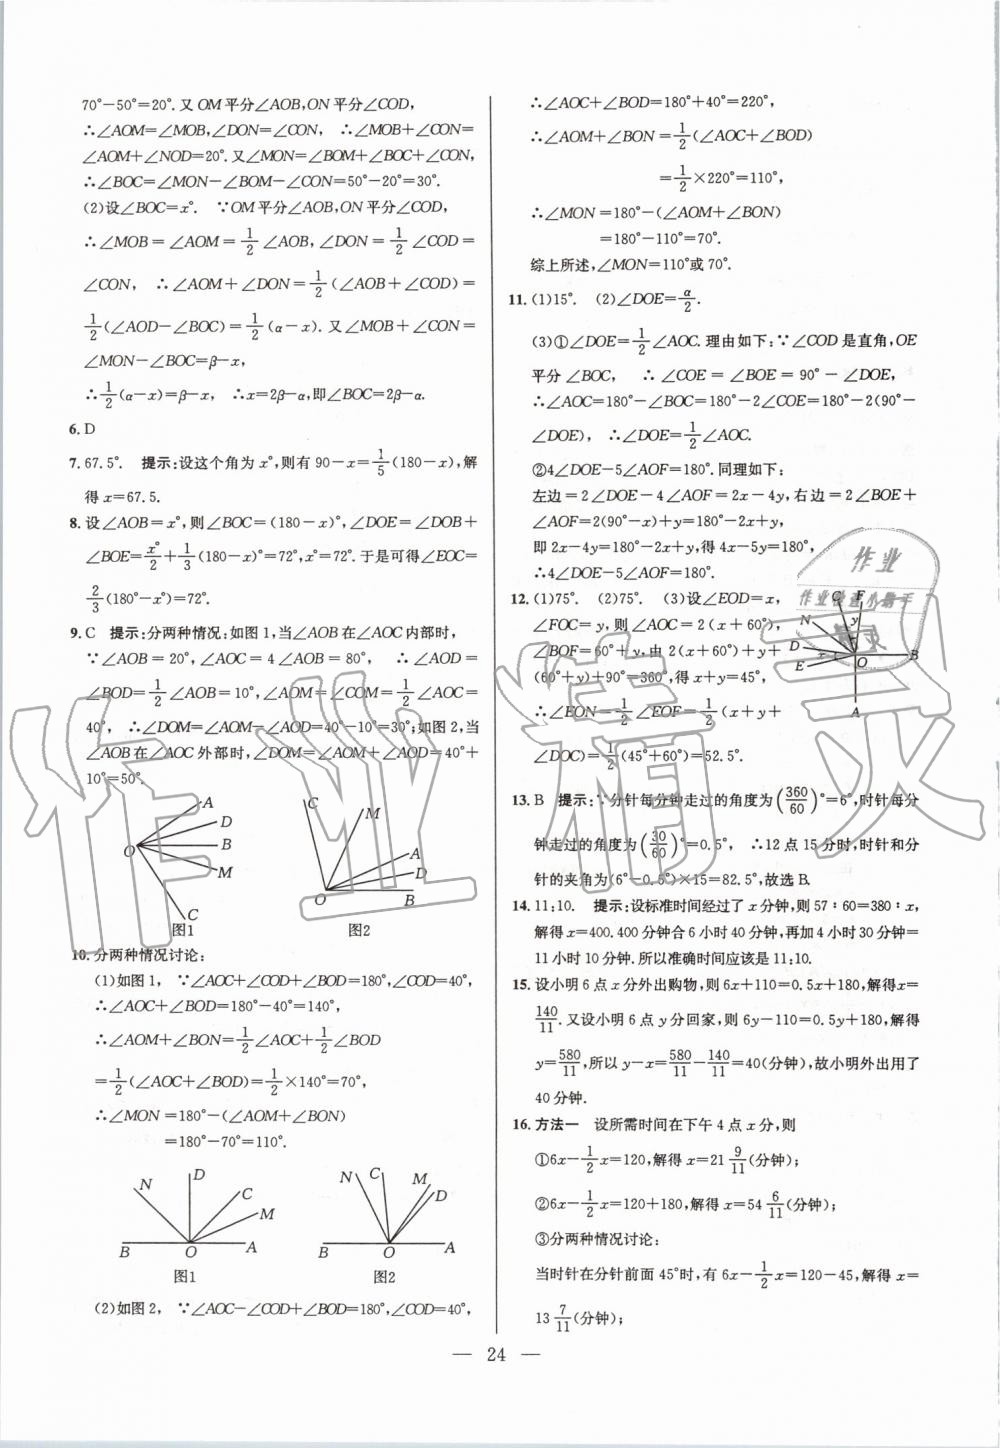 70°−50°=20°.又 OM平分∠AOB,ON平分∠COD,
∴∠AOM=∠MOB,∠DON=∠CON, ∴∠MOB+∠CON=
∠AOM+∠NOD=20°.又∠MON=∠BOM+∠BOC+∠CON,
∴∠BOC=∠MON−∠BOM−∠CON=50°−20°=30°.
(2)设∠BOC=x°. ∵OM平分∠AOB,ON平分∠COD,
∴∠MOB=∠AOM=1/2∠AOB,∠DON=1/2∠COD=
∠CON, ∴∠AOM+∠DON=1/2(∠AOB+∠COD)=
1/2(∠AOD−∠BOC)=1/2(α−x).又∠MOB+∠CON=
∠MON−∠BOC=β−x,
∴1/2(α−x)=β−x, ∴x=2β−α,即∠BOC=2β−α.
6. D
7. 67.5°. 提示:设这个角为x°,则有90−x=1/5(180−x),解
得x=67.5.
8. 设∠AOB=x°,则∠BOC=(180−x)°,∠DOE=∠DOB+
∠BOE=x°/2+1/3(180−x)°=72°,x°=72°.于是可得∠EOC=
2/3(180°−x°)=72°.
9. C 提示:分两种情况:如图1,当∠AOB在∠AOC内部时,
∵∠AOB=20°,∠AOC=4∠AOB=80°, ∴∠AOD=
∠BOD=1/2∠AOB=10°,∠AOM=∠COM=1/2∠AOC=
40°, ∴∠DOM=∠AOM−∠AOD=40°−10°=30°;如图2,当
∠AOB在∠AOC外部时,∠DOM=∠AOM+∠AOD=40°+
10°=50°.
A
D
O
B
M
C
图1
C
M
A
D
O
B
图2
10. 分两种情况讨论:
(1)如图1, ∵∠AOC+∠COD+∠BOD=180°,∠COD=40°,
∴∠AOC+∠BOD=180°−40°=140°,
∴∠AOM+∠BON=1/2∠AOC+1/2∠BOD
=1/2(∠AOC+∠BOD)=1/2×140°=70°,
∴∠MON=180°−(∠AOM+∠BON)
=180°−70°=110°.
N
D
C
M
B
O
A
图1
N
C
M
D
B
O
A
图2
(2)如图2, ∵∠AOC−∠COD+∠BOD=180°,∠COD=40°,
∴∠AOC+∠BOD=180°+40°=220°,
∴∠AOM+∠BON=1/2(∠AOC+∠BOD)
=1/2×220°=110°,
∴∠MON=180°−(∠AOM+∠BON)
=180°−110°=70°.
综上所述,∠MON=110°或70°.
11. (1)15°. (2)∠DOE=α/2.
(3)①∠DOE=1/2∠AOC.理由如下:∵∠COD是直角,OE
平分∠BOC, ∴∠COE=∠BOE=90°−∠DOE,
∴∠AOC=180°−∠BOC=180°−2∠COE=180°−2(90°−
∠DOE), ∴∠DOE=1/2∠AOC.
②4∠DOE−5∠AOF=180°.同理如下:
左边=2∠DOE−4∠AOF=2x−4y,右边=2∠BOE+
∠AOF=2(90°−x)+y=180°−2x+y,
即2x−4y=180°−2x+y,得4x−5y=180°,
∴4∠DOE−5∠AOF=180°.
12. (1)75°. (2)75°. (3)设∠EOD=x,
∠FOC=y,则∠AOC=2(x+60°),
∠BOF=60°+y,由2(x+60°)+y+
(60°+y)+90°=360°,得x+y=45°,
∴∠EON=1/2∠EOF=1/2(x+y+
∠DOC)=1/2(45°+60°)=52.5°.
C
F
N
y
D
x
O
B
E
A
13. B 提示:∵分针每分钟走过的角度为(360/60)°=6°,时针每分
钟走过的角度为(30/60)°=0.5°, ∴12点15分时,时针和分
针的夹角为(6°−0.5°)×15=82.5°,故选B.
14. 11:10. 提示:设标准时间经过了x分钟,则57∶60=380∶x,
解得x=400.400分钟合6小时40分钟,再加4小时30分钟=
11小时10分钟.所以准确时间应该是11:10.
15. 设小明6点x分外出购物,则6x+110=0.5x+180,解得x=
140/11.又设小明6点y分回家,则6y−110=0.5y+180,解得
y=580/11,所以y−x=580/11−140/11=40(分钟),故小明外出用了
40分钟.
16. 方法一 设所需时间在下午4点x分,则
①6x−1/2x=120,解得x=21 9/11(分钟);
②6x−1/2x=120+180,解得x=54 6/11(分钟);
③分两种情况讨论:
当时针在分针前面45°时,有6x−1/2x=120−45,解得x=
13 7/11(分钟);
— 24 —
作业精灵
作业
作业检查小帮手